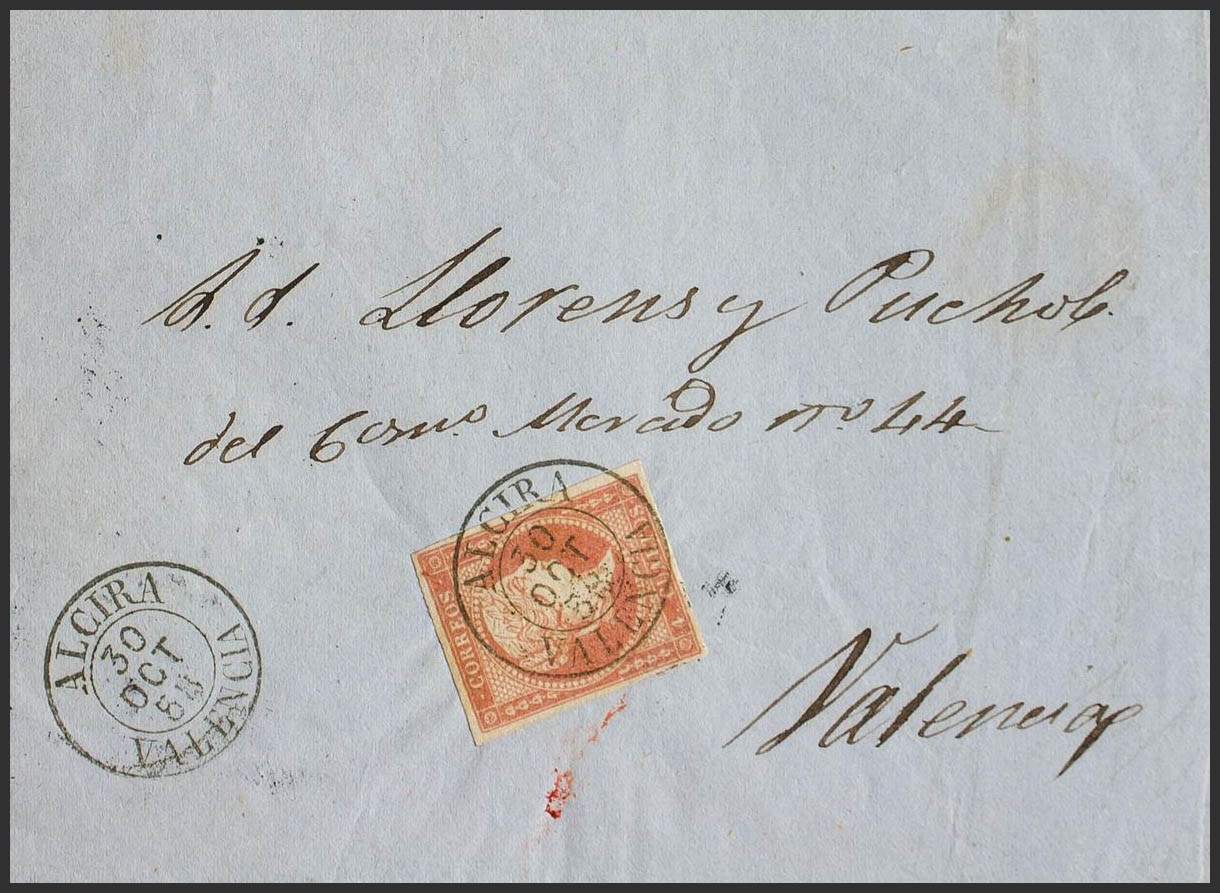 S.S. Llorens y Puchol.
del Comº. Mercado nº 44
ALCIRA
30
OCT
58
VALENCIA
CORREOS
ALCIRA
30
OCT
58
VALENCIA
Valencia